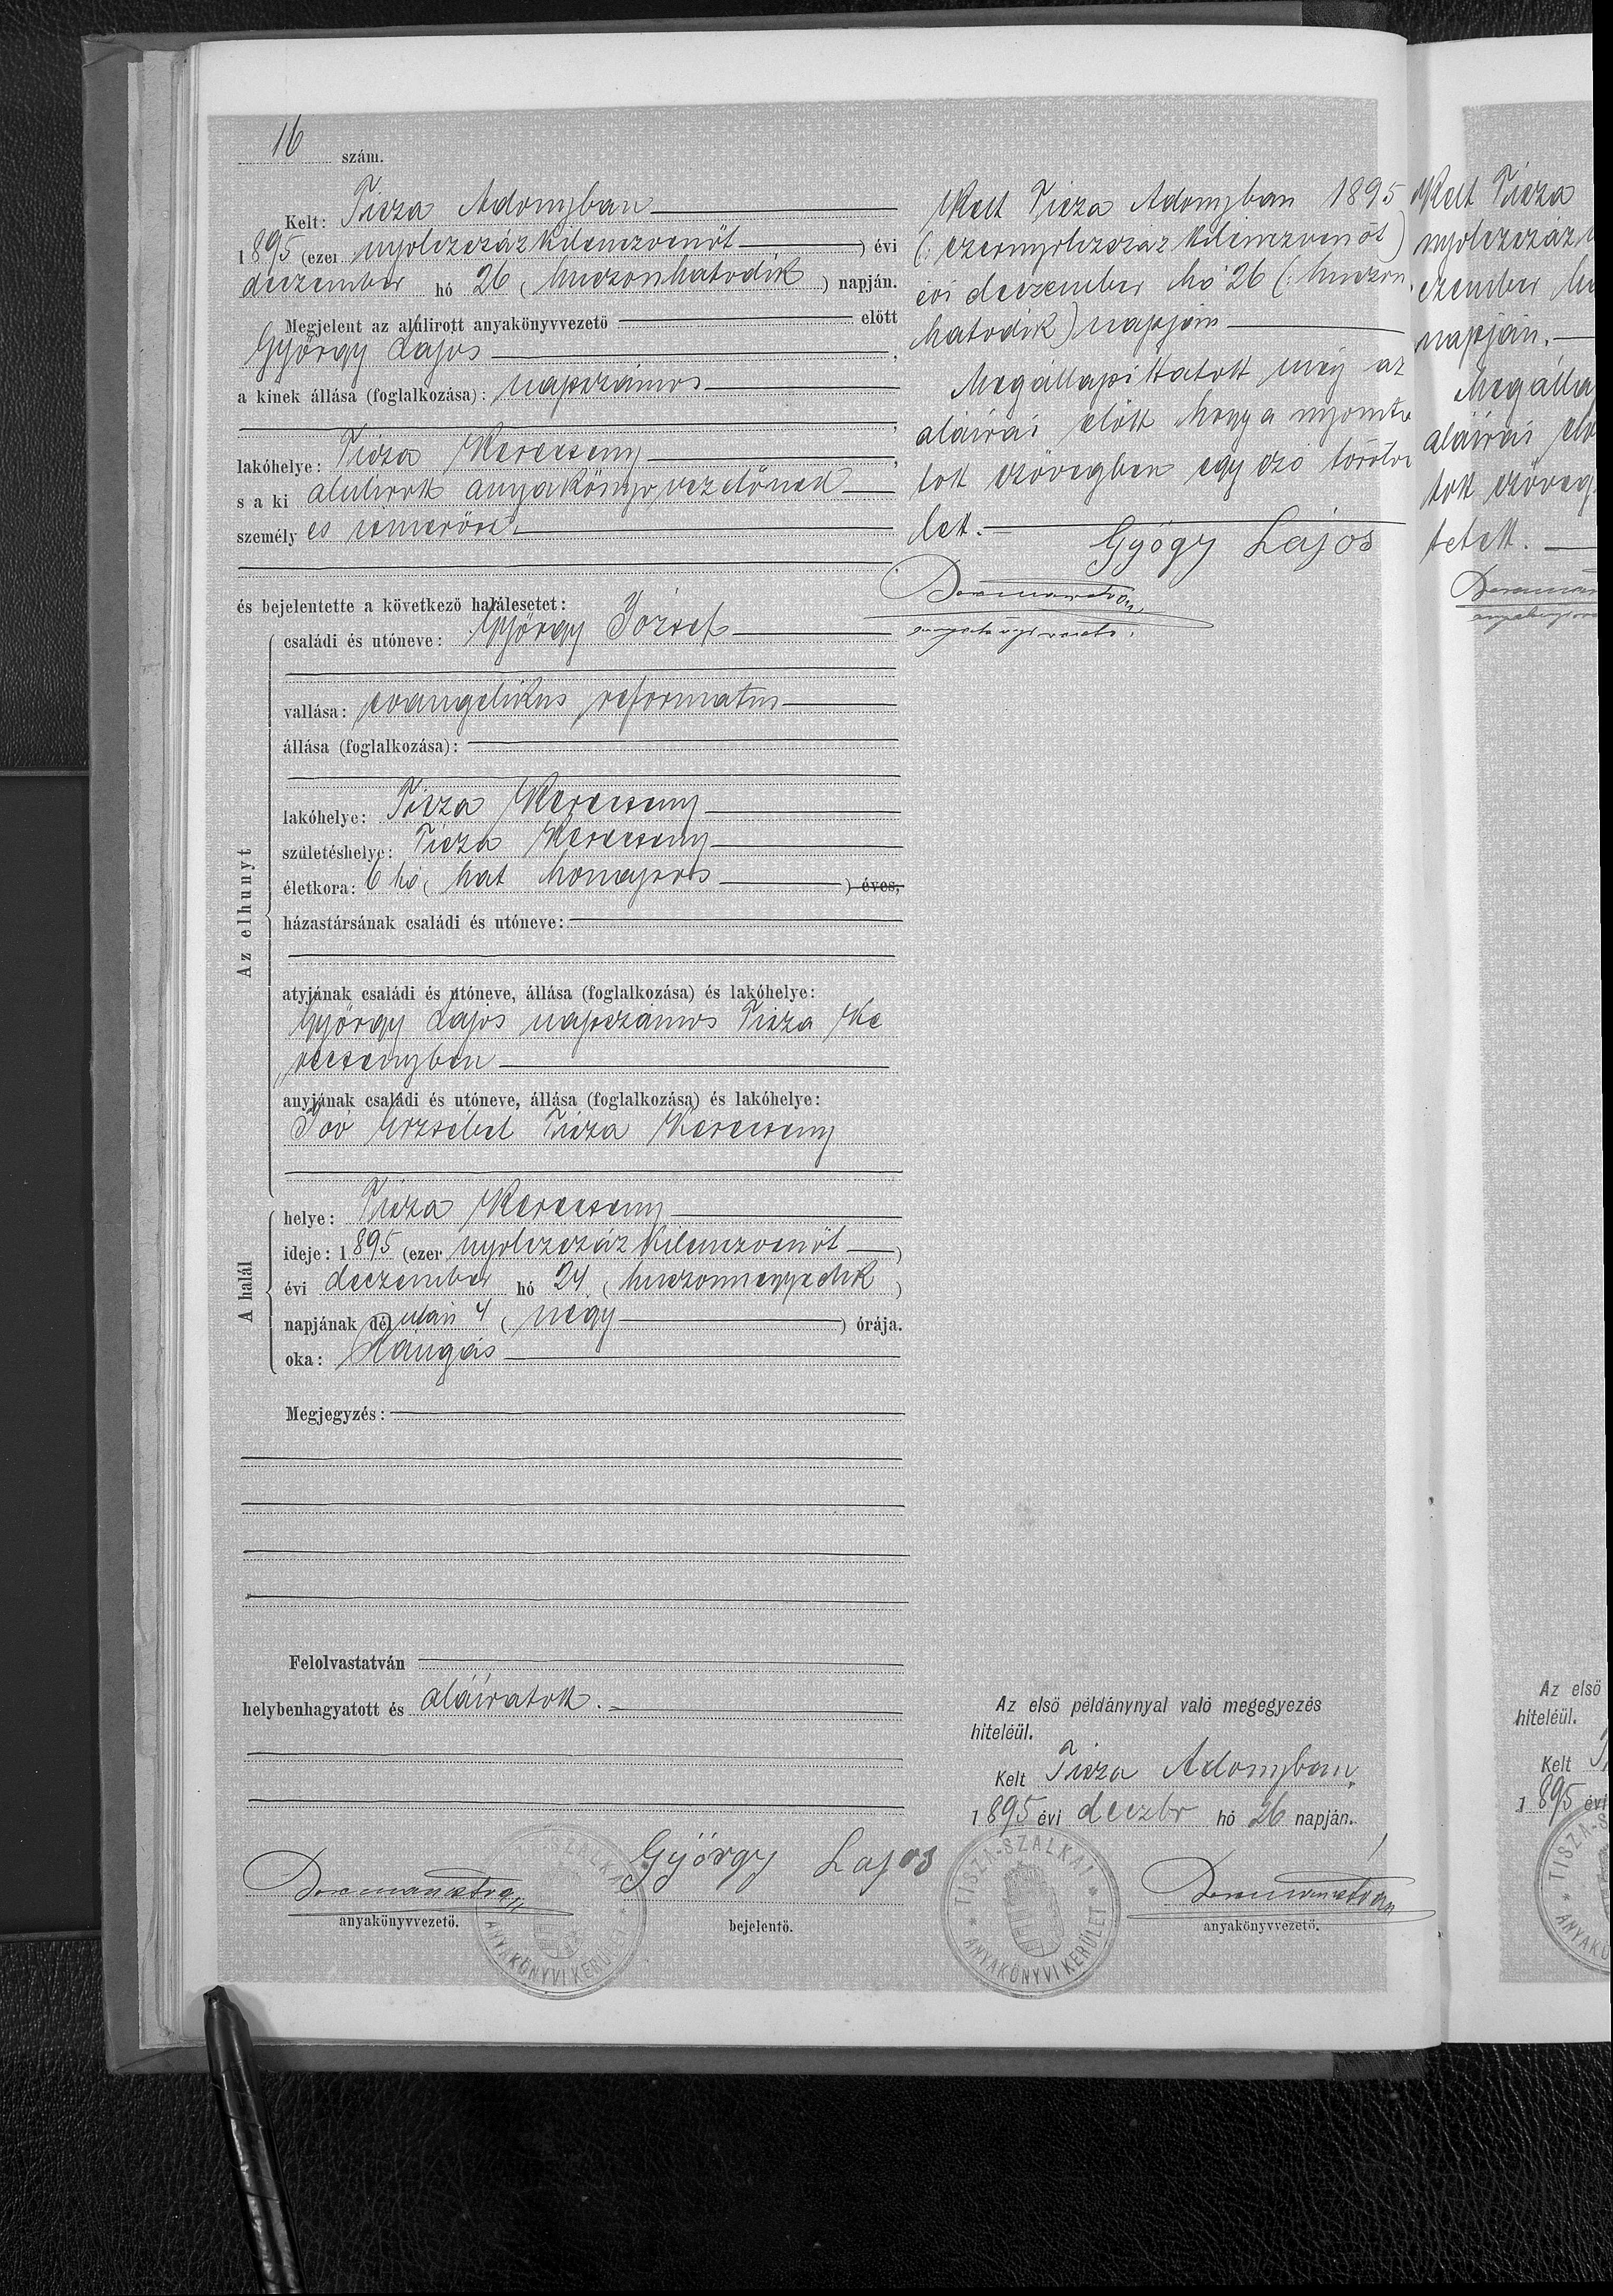 16 szám.
Kelt: Tisza Adonyban
1895 (ezer nyolczszázkilenczvenöt) évi
deczember hó 26 (huszonhatodik) napján.
Megjelent az alulirott anyakönyvvezető előtt
György Lajos,
a kinek állása (foglalkozása): napszámos
lakóhelye: Tisza Kerecseny,
s a ki alulirott anyakönyvvezetőnek
személyes ismerőse
és bejelentette a következő halálesetet:
Az elhunyt
családi és utóneve: György József
vallása: evangelikus reformatus
állása (foglalkozása):
lakóhelye: Tisza Kerecseny
születéshelye: Tisza Kerecseny
életkora: 6 hó (hat honapos) éves,
házastársának családi és utóneve:
atyjának családi és utóneve, állása (foglalkozása) és lakóhelye:
György Lajos napszámos Tisza Ke
recsenyben
anyjának családi és utóneve, állása (foglalkozása) és lakóhelye:
Erzsébet Tisza Kerecseny
A halál
helye: Tisza Kerecseny
ideje: 1895 (ezer nyolczszázkilenczvenöt)
évi deczember hó 24 (huszonnegyedik)
napjának dél után 4 (négy) órája.
oka:
Megjegyzés:
Felolvastatván
helybenhagyatott és aláiratott.
anyakönyvvezető.
TISZA-SZALKAI ANYAKÖNYVI KERÜLET
György Lajos
bejelentő.
Kelt Tisza Adonyban 1895
(: ezernyolczszáz kilenczvenöt)
évi deczember hó 26 (: huszon
hatodik) napján
Megállapittatott még az
aláirás előtt hogy a nyomta
tott szövegben egy szó törölve
lett.
Gyögy Lajos
anyakönyvvezető.
Az első példánynyal való megegyezés
hiteléül.
Kelt Tisza Adonyban,
1895 évi deczbr hó 26 napján.
TISZA-SZALKAI ANYAKÖNYVI KERÜLET
anyakönyvvezető.
Kelt Tisza
nyolczszáz
czember
napján.
Megálla
aláirás elő
tott szöveg
tetett.
Az első
hiteléül.
Kelt
1895 évi
TISZA-S
ANYAKÖ